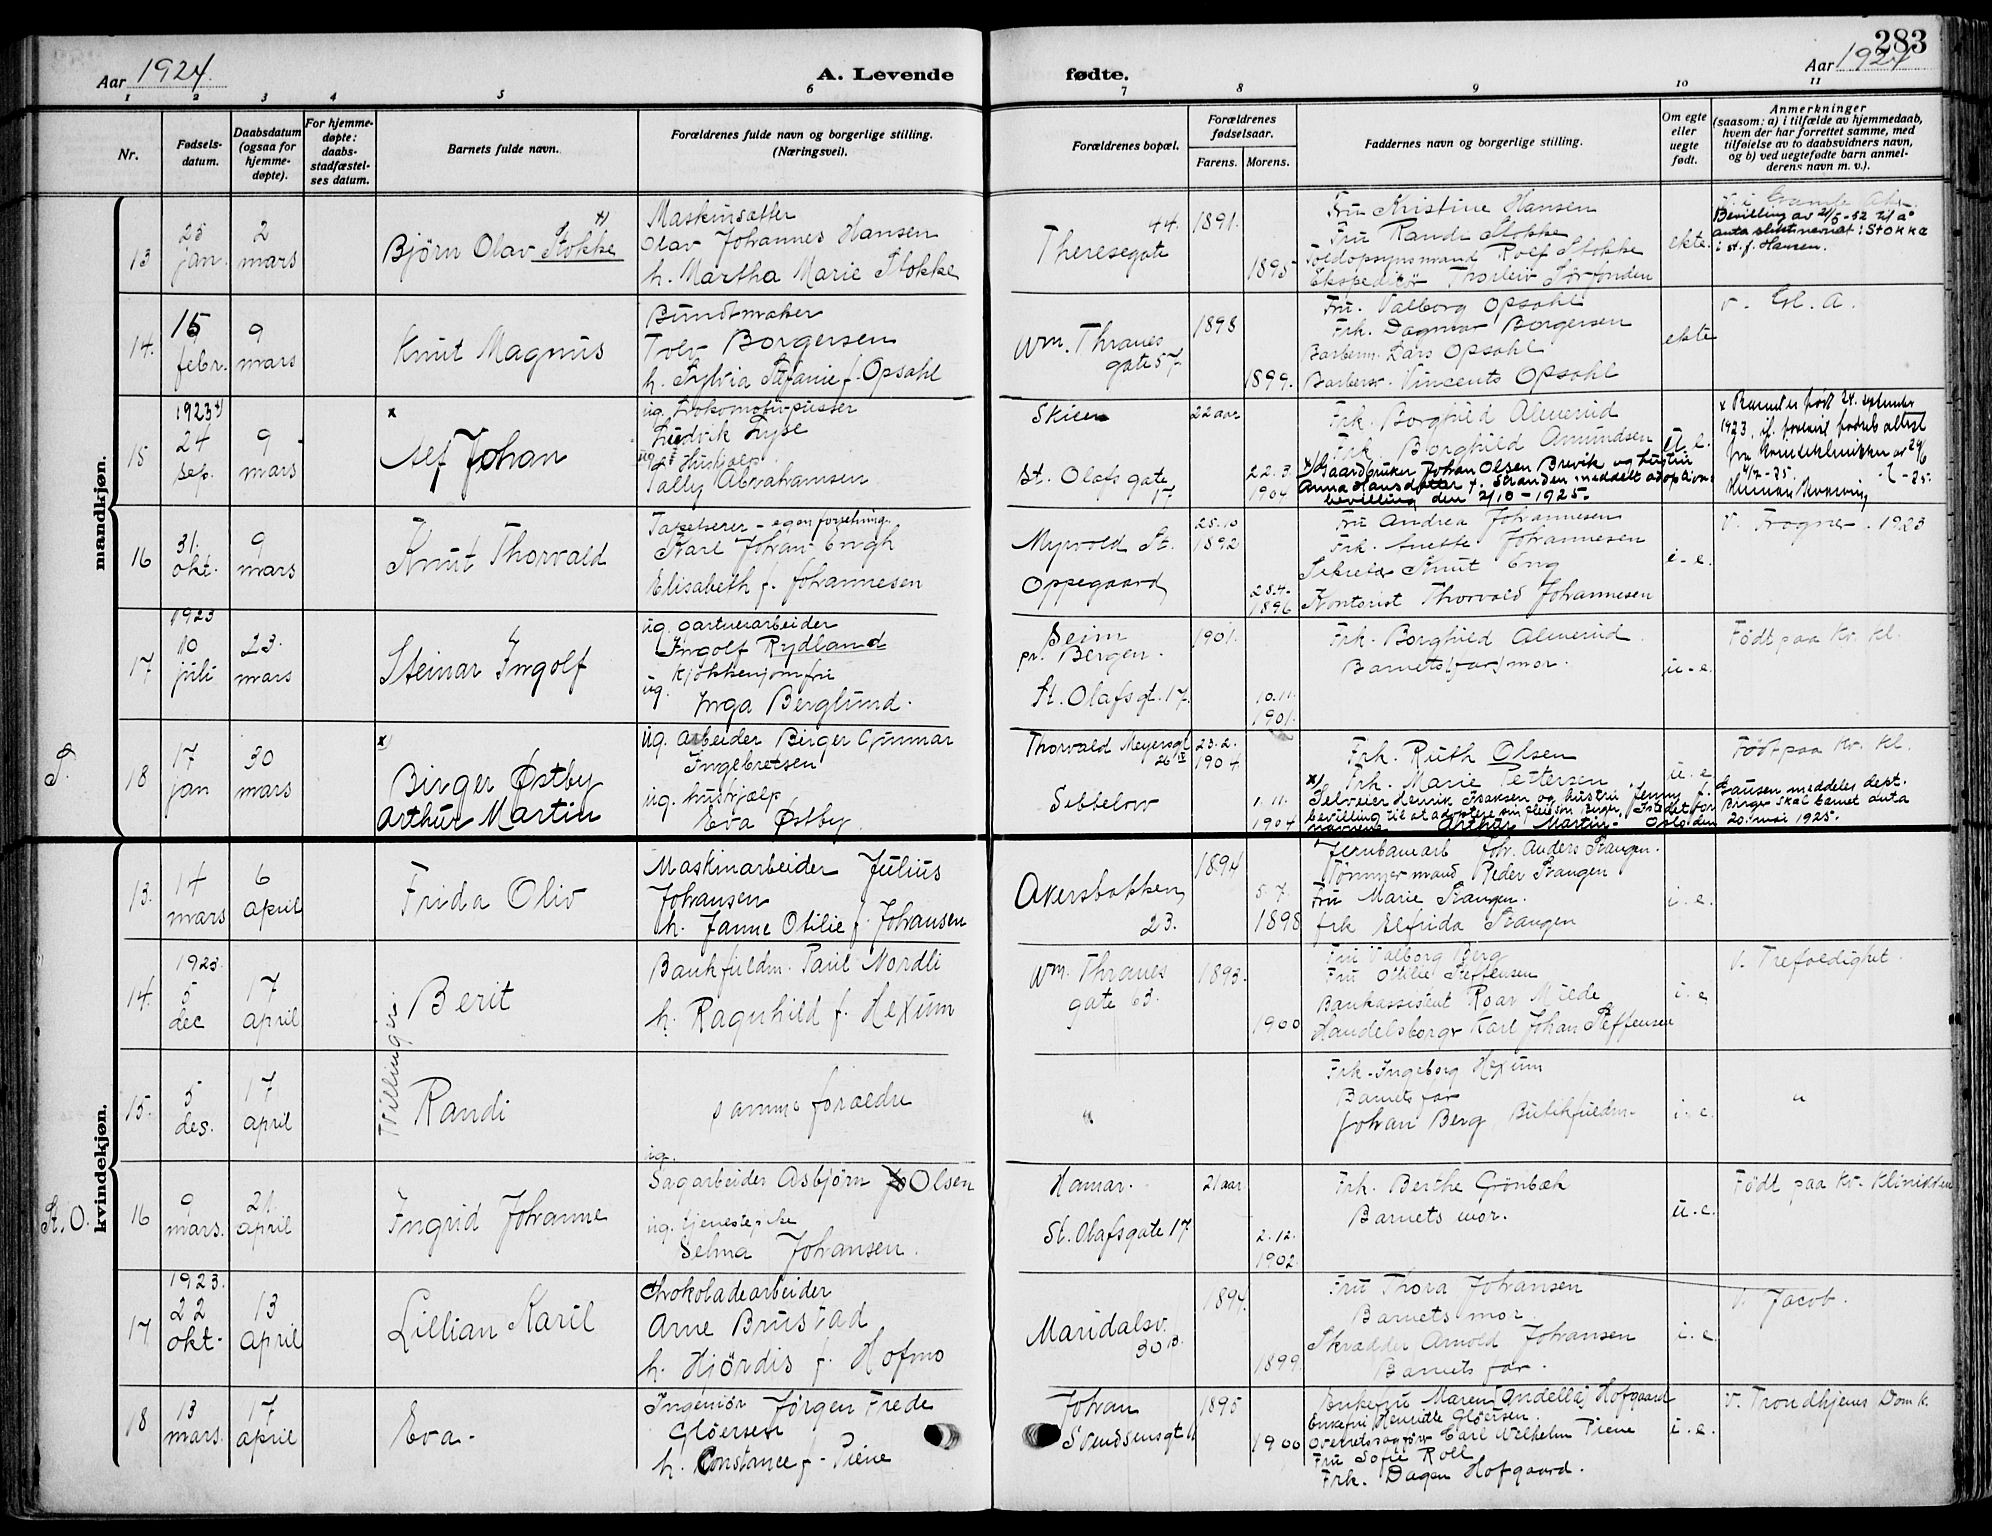 283
Aar 1924.
A. Levende fødte.
Aar 1924
1 2 3 4 5 6 7 8 9 10 11
Nr.
Fødsels-
datum.
Daabsdatum
(ogsaa for
hjemme-
døpte).
For hjemme-
døpte:
daabs-
stadfæstel-
ses datum.
Barnets fulde navn.
Forældrenes fulde navn og borgerlige stilling.
(Næringsvei).
Forældrenes bopæl.
Forældrenes
fødselsaar.
Farens. Morens.
Faddernes navn og borgerlige stilling.
Om egte
eller
uegte
født.
Anmerkninger
(saasom: a) i tilfælde av hjemmedaab,
hvem der har forrettet samme, med
tilføielse av to daabsvidners navn,
og b) ved uegtefødte barn anmel-
derens navn m. v.).
mandkjøn.
13
25
jan.
2
mars
Bjørn Olav Stokke
Maskinsætter
Olav Johannes Hansen
h. Martha Marie Stokke
44.
Theresegate
1891.
1895
Fru Kristine Hansen
Fru Randi Stokke
Toldopsynsmand Rolf Stokke
Ekspeditør Thorleiv
ekte.
Bevilling av 21/5-52 til å
anta slektsnavnet: Stokke
i st. f. Hansen.
14.
15
febr.
9
mars
Knut Magnus
Bundtmaker
Tolv Borgersen
h. Sylvia Stefanie f. Opsahl
Wm. Thranes
gate 57.
1898
1899.
Fru. Valborg Opsahl
Frk. Dagmar Borgersen
Barberm. Lars Opsahl
Barbersv. Vincents Opsahl
ekte
v. Gl. A.
15
1923
24
sep.
9
mars
x
Alf Johan
ug. Lokomotivpusser
Ludvik Lyse
ug. Hushjelp
Tally Abrahamsen
Skien
St. Olafs gate
17
22 aar
22.3
1904
Frk. Borghild Almerud
Frk Borghild Amundsen
x) Gaardbruker Johan Olsen Brevik og hustru
Anna Hansdatter f. Stranden meddelt adoptions
bevilling den 2/10-1925.
u. e.
x Barnet er født 24. september
1923, if.
fra Kvindeklinikken av 29/6
16
31.
okt.
9
mars
Knut Thorvald
Tapetserer - egen forretning.
Karl Johan Engh
Elisabeth f. Johannesen
Myrvold St.
Oppegaard
28.10
1892
28.4.
1896
Fru Andrea Johannesen
Frk. Anette Johannesen
Sekretær Knut Eng
Kontorist Thorvald Johannesen
i-e.
v. Frogner. 1923
17
1923
10
juli
23.
mars
Steinar Ingolf
ug. gartnerarbeider
Ingolf Rydland
kjøkkenjomfru
ug. Inga Berglund.
Seim
pr. Bergen.
St. Olafsgt. 17.
1901.
10.11.
1901.
Frk. Borghild Almerud.
Barnets (far) mor.
u-e.
Født paa Kv. Kl.
18
17
jan
30
mars
x)
Birger Østby
Arthur Martin
ug. arbeider Birger Gunnar
Ingebretsen
ug. hushjælp
Eva Østby.
Thorvald Meyersgt
26 IV
Sebbelow
23.2.
1904
1.11.
1904
Frk. Ruth Olsen
Frk. Marie Pettersen
x) Selveier Henrik Isaksen og hustru Jenny f.
bevilling til at adoptere sin pleiesøn Birger. Istedet for
navnene Arthur Martin. Oslo den
u. e.
Født paa Kv. Kl.
Gausen meddeles dest.
Birger skal barnet anta
20. mai 1925.
kvindekjøn.
13.
14
mars
6
april
Frida Oliv
Maskinarbeider Julius
Johansen
h. Janne Otilie f. Johansen
Akersbakken
23.
1894
5.7.
1898
Jernbanearb. Joh. Anders Stangen.
Tømmermand Peder Stangen
Fru Marie Stangen.
Frk Elfrida Stangen
i. e.
14.
1923.
5
dec
17
april
Tvillinger
Berit
Bankfuldm. Paul Nordli
h. Ragnhild f. Hexum
Wm. Thranes
gate 63.
1893.
1900
Fru Valborg Berg
Fru Otilie Steffensen
Bankassistent Roar Milde
Handelsborger Karl Johan Steffensen
i. e
v. Trefoldighet.
15.
5
des.
17
april
Randi
samme forældre
"
Frk. Ingeborg Hexum
Barnets far
Johan Berg Butikfuldm.
i. e.
"
St. O.
16
9
mars.
21.
april
Ingrid Johanne
ug.
Sagarbeider Asbjørn Olsen
ug. tjenestepike
Selma Johansen.
Hamar.
St. Olafsgate 17
21 aar
2.12.
1902.
Frk. Berthe Grönbæk
Barnets mor.
u. e.
Født paa Kv. Klinikken
17
1923.
22
okt.
13
april
Lillian Karil
Chokoladearbeider
Arne Brustad
h. Hjördis f. Hofmo
Maridalsv.
30 B.
1894.
1899.
Fru Thora Johansen
Barnets mor
Skrædder Arnold Johansen
Barnets far.
i. e
v. Jacob.
18
13
mars.
17
april
Eva.
Ingeniør Jörgen Frede
Glöersen
h. Constance f. Piene
Johan
Svendsensgt
1895
1900
Enkefru Maren (Andella) Hofgaard
Enkefru Henriette Glöersen.
Overretssagfører Carl Wilhelm Piene
Fru Sofie Roll
Frk. Dagen Hofgaard.
i. e.
v. Trondhjems Domk.